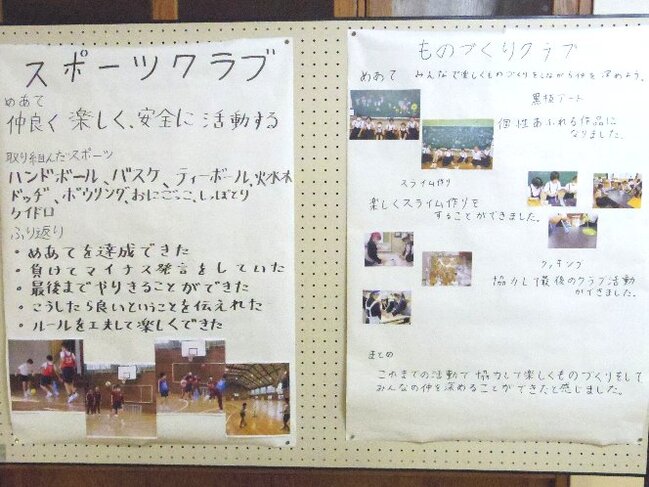 スポーツクラブ
めあて
仲良く楽しく、安全に活動する
取り組んだスポーツ
ハンドボール、バスケ、ティーボール、火水木
ドッヂ、ボウリング、おにごっこ、しっぽとり
ケイドロ
ふり返り
・めあてを達成できた
・負けてマイナス発言をしていた
・最後までやりきることができた
・こうしたら良いということを伝えれた
・ルールを工夫して楽しくできた
ものづくりクラブ
めあて みんなで楽しくものづくりをしながら仲を深めよう。
黒板アート
個性あふれる作品に
なりました。
スライム作り
楽しくスライム作りを
することができました。
クッキング
協力して最後のクラブ活動
ができました。
まとめ
これまでの活動で協力して楽しくものづくりをして
みんなの仲を深めることができたと感じました。